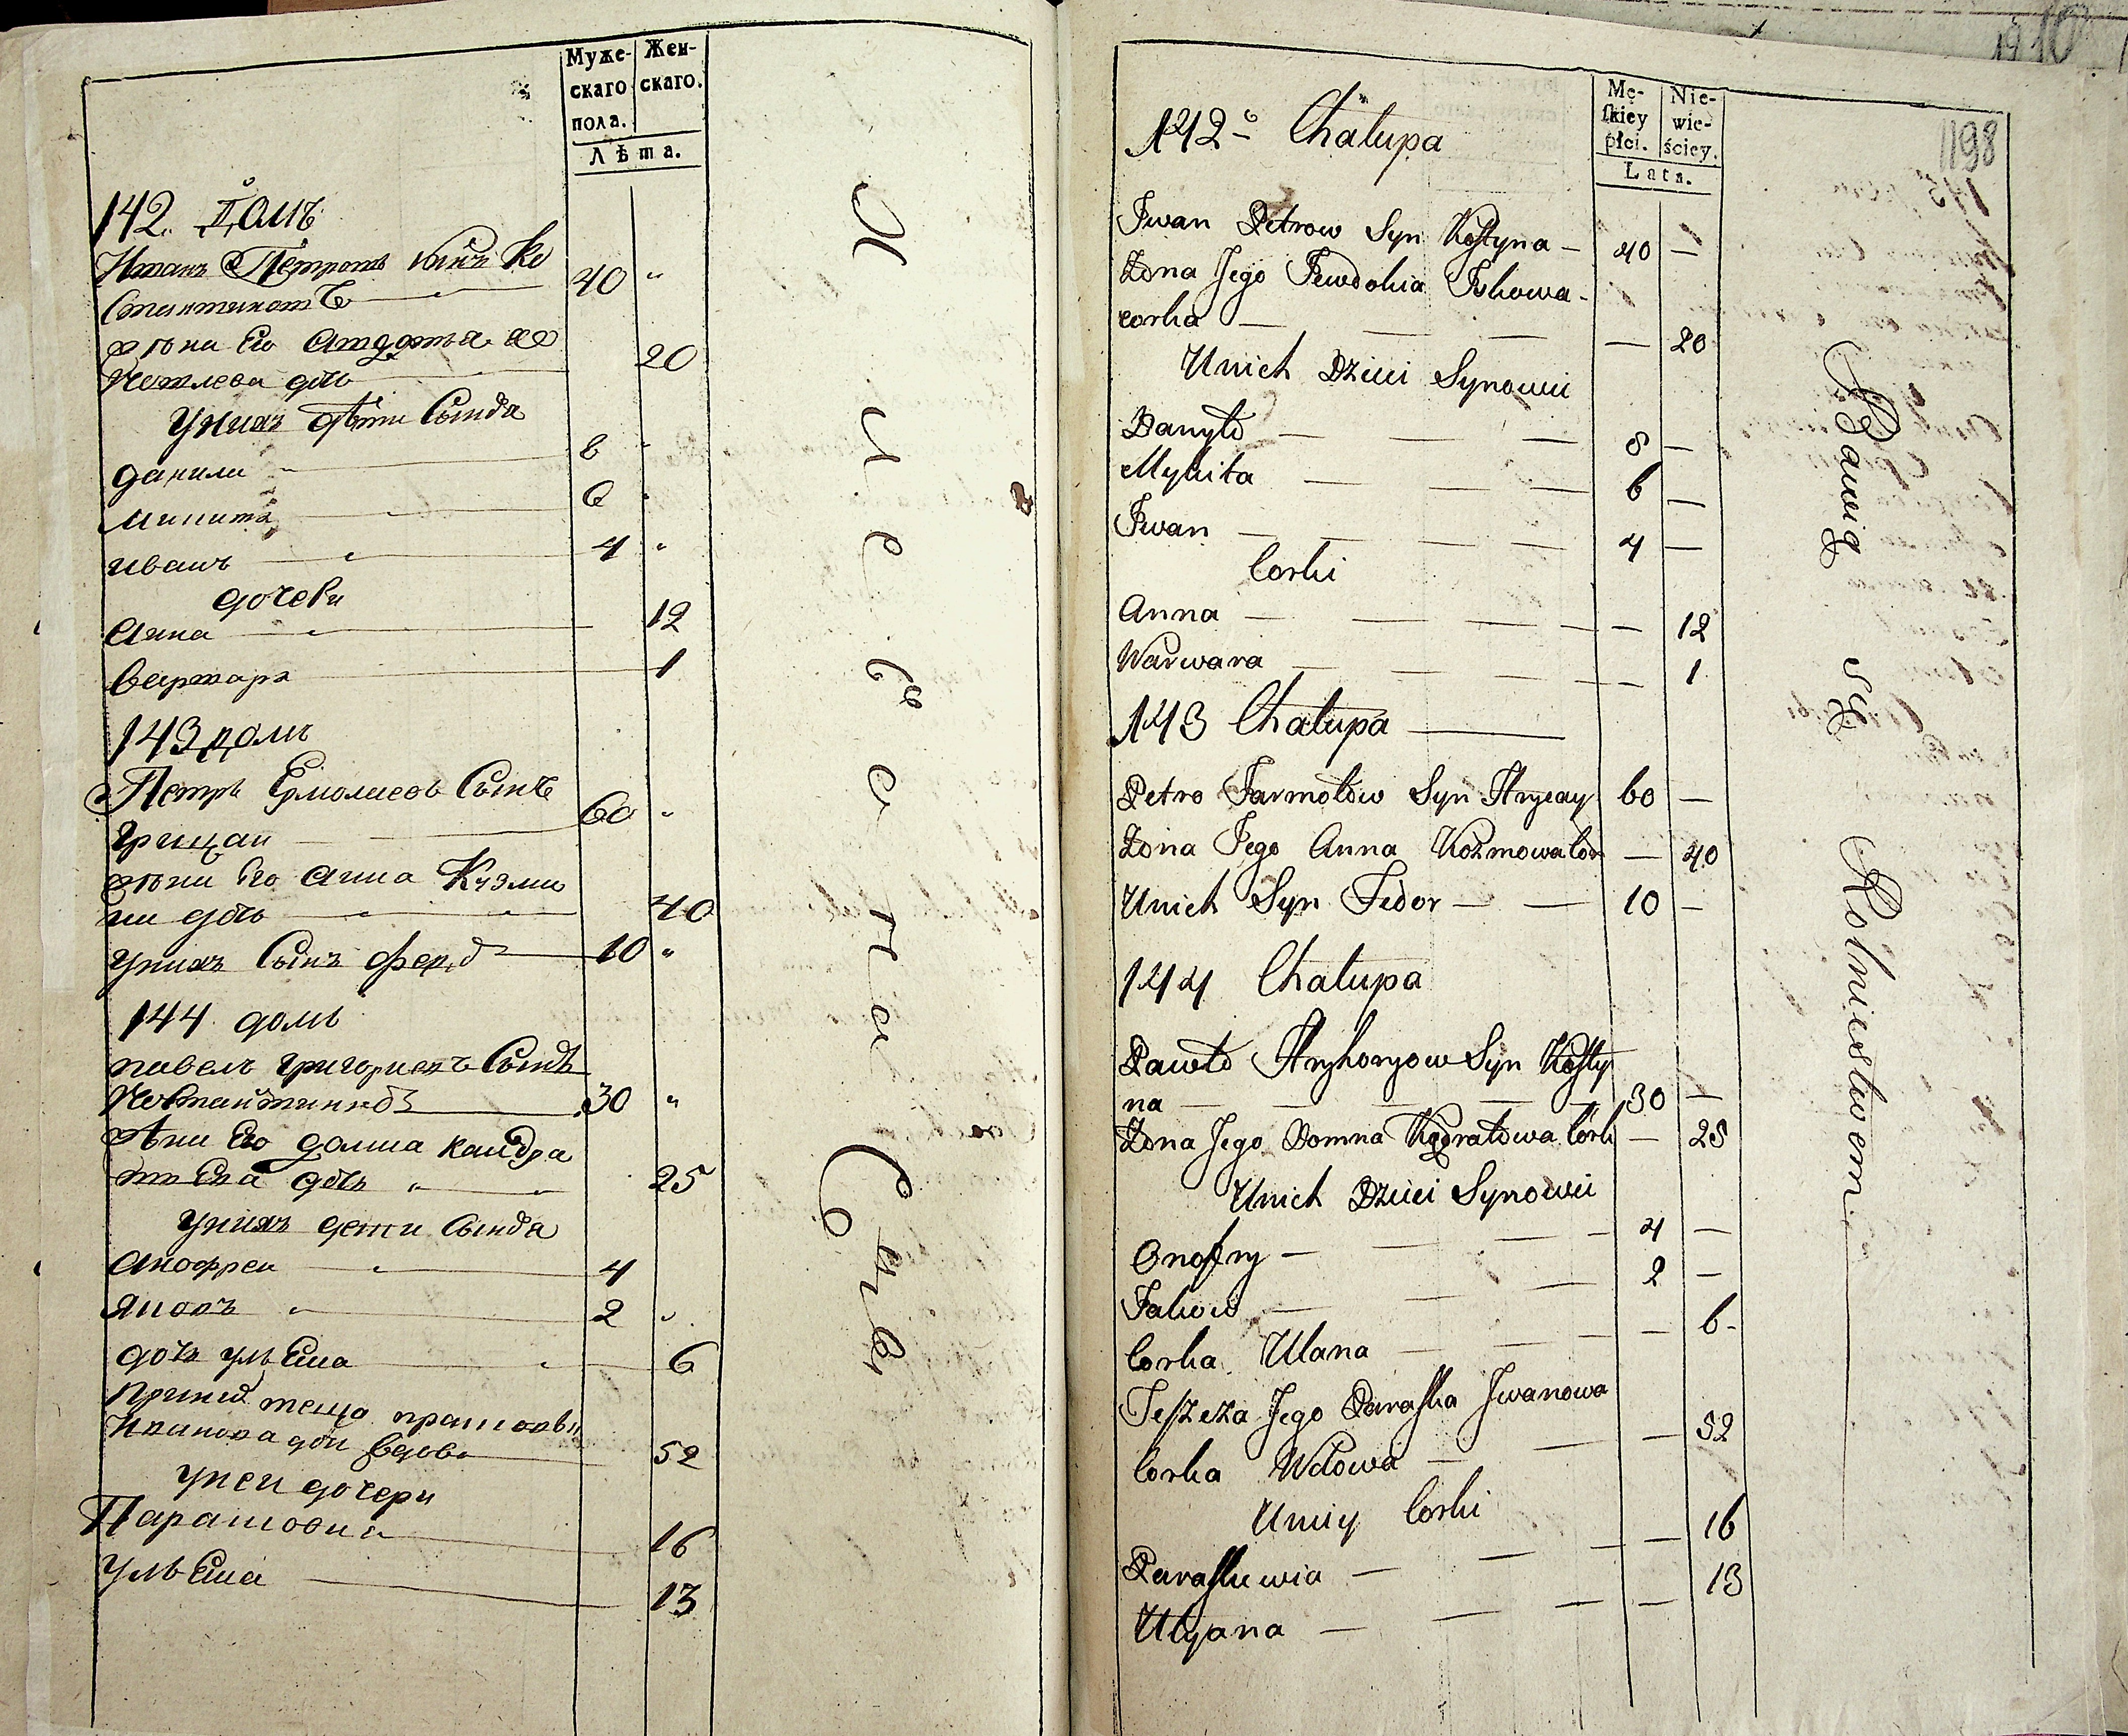 Муже-
скаго
пола.
Жен-
скаго.
Лѣта.
142. Домъ
Иванъ Петровъ сынъ Ко
стантиновъ 40 "
жона Его Авдотья Яо
ковлева дочь 20
у них дѣти Сынова
данила 8 "
микита 6 "
иванъ 4 "
дочери
Анна 12
варвара 1
143 домъ
Петръ Ермолаевъ Сынъ
грицаи 60 "
жона Его Анна Кузми
на дочь 40
у нихъ Сынъ федо 10 "
144 домъ
павелъ григориевъ Сынъ
Костантиновъ 30 "
жона Его домна кандра
тьева дочь " 25
у нихъ дети Сынова
Анофреи 4
яковъ 2 "
дочь ульяна 6
теща прасковья
Иванова дочь вдова 52
у неи дочери
Парасковия 16
ульяна 13
1910
1198
142e Chałupa
Mę-
skiey
płci.
Nie-
wie-
ściey.
Lata.
Iwan Petrow Syn Kostyna 40 —
Żona Jego Jewdokia Jakowa
corka — — 20
Unich Dzieci Synowie
Danyło — 8 —
Mykita — 6 —
Iwan — 4 —
Corki
Anna — — 12
Warwara — — 1
143 Chałupa
Petro Jarmołow Syn Hrycay 60 —
Żona Jego Anna Kozmowa Cór — 40
Unich Syn Fedor — 10 —
144 Chałupa
Pawło Hryhoryow Syn Kosty
na — 30 —
Żona Jego Domna Kądratowa Córk — 25
Unich Dzieci Synowie
Onofry — 4 —
Jakow — 2 —
Corka Ulana — — 6
Teszcza Jego Paraska Iwanowa
Corka Wdowa — — 52
Uniey Corki
Paraskewia — — 16
Ulyana — — 13
Bawią się Rolnictwem